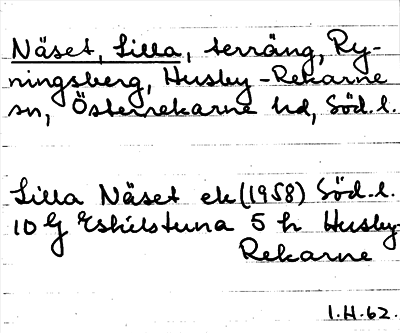 Näset, Lilla, terräng, Ry-
ningsberg, Husby-Rekarne
sn, Österrekarne hd, Söd.l.
Lilla Näset ek (1958) Söd.l.
10 G Eskilstuna 5 h Husby-
Rekarne
I.H.62.